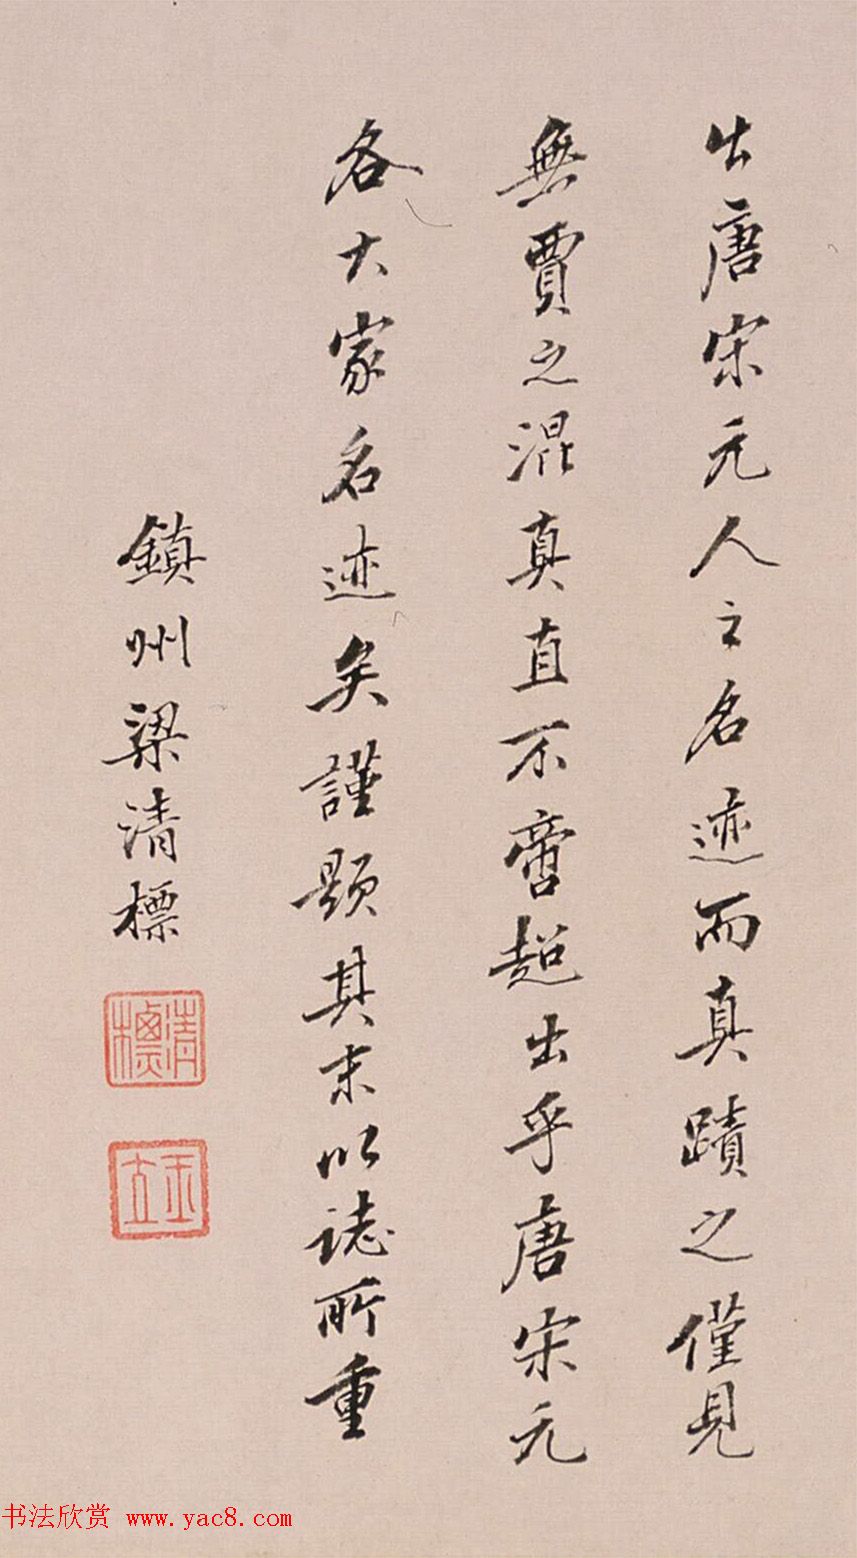 出唐宋元人之名迹而真蹟之僅見
無賈之混真直不啻超出乎唐宋元
各大家名迹矣謹題其末以誌所重
鎮州梁清標
清標
玉立
书法欣赏 www.yac8.com